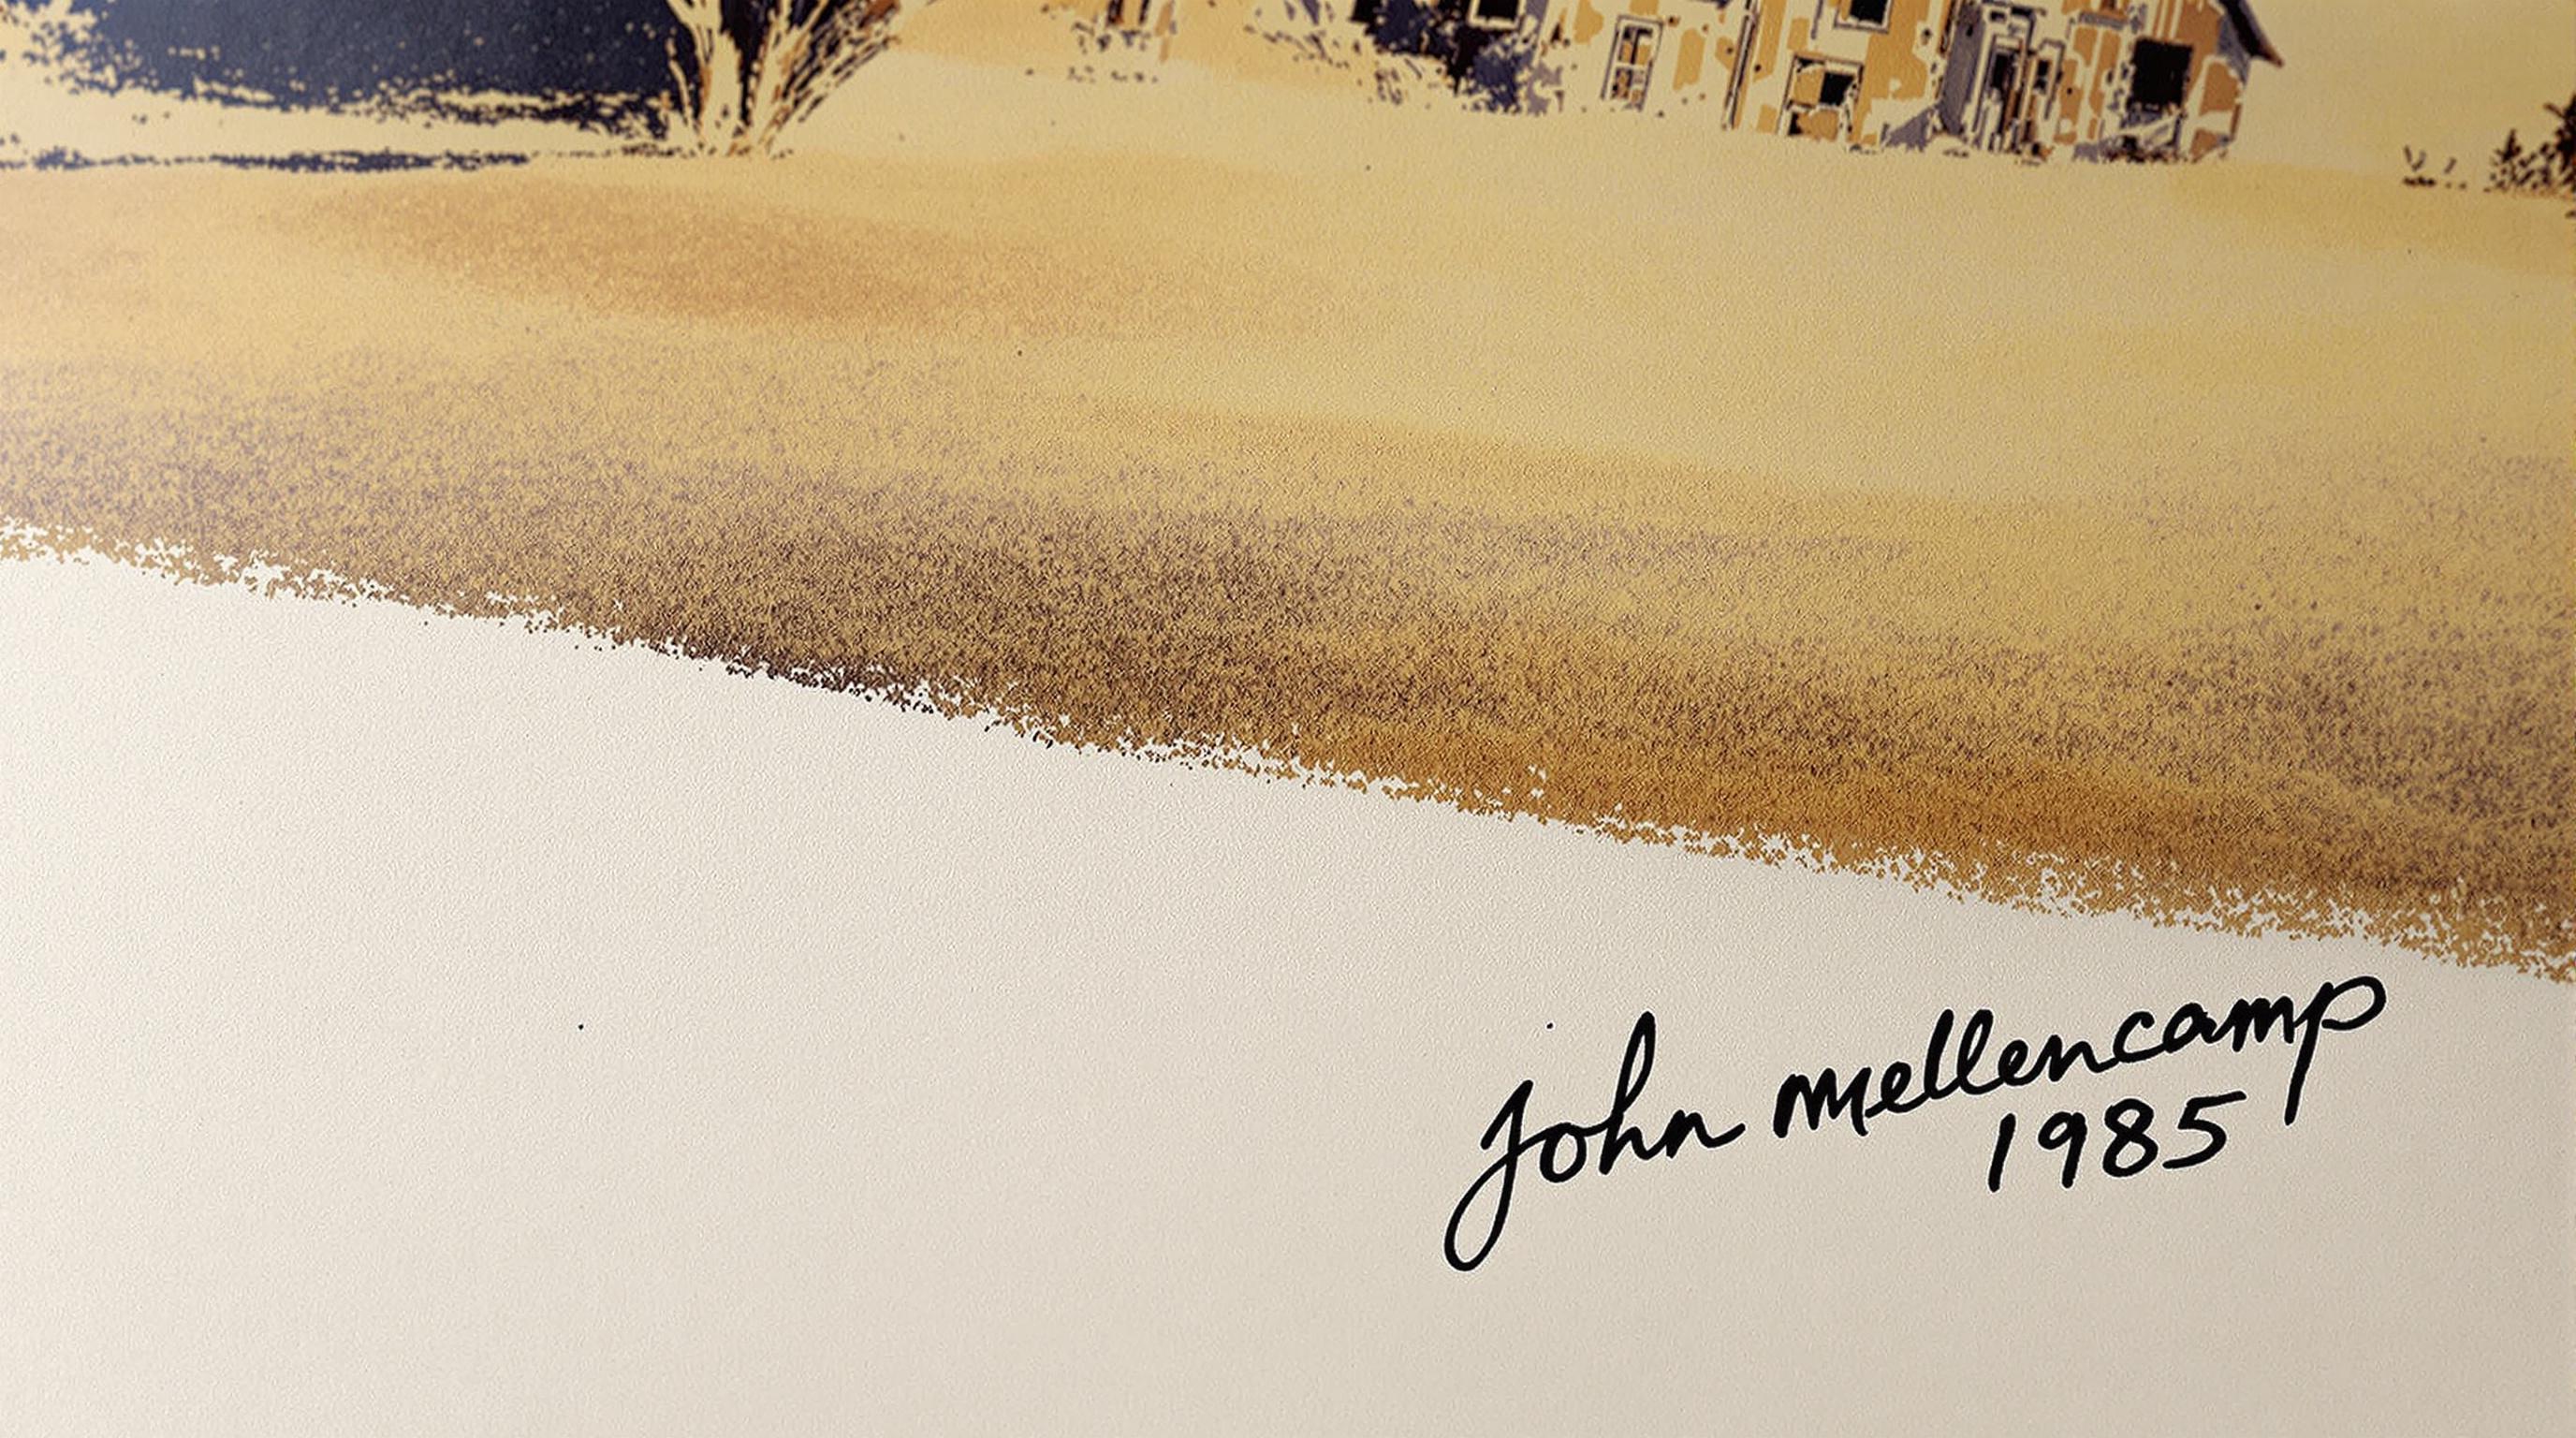 John Mellencamp
1985